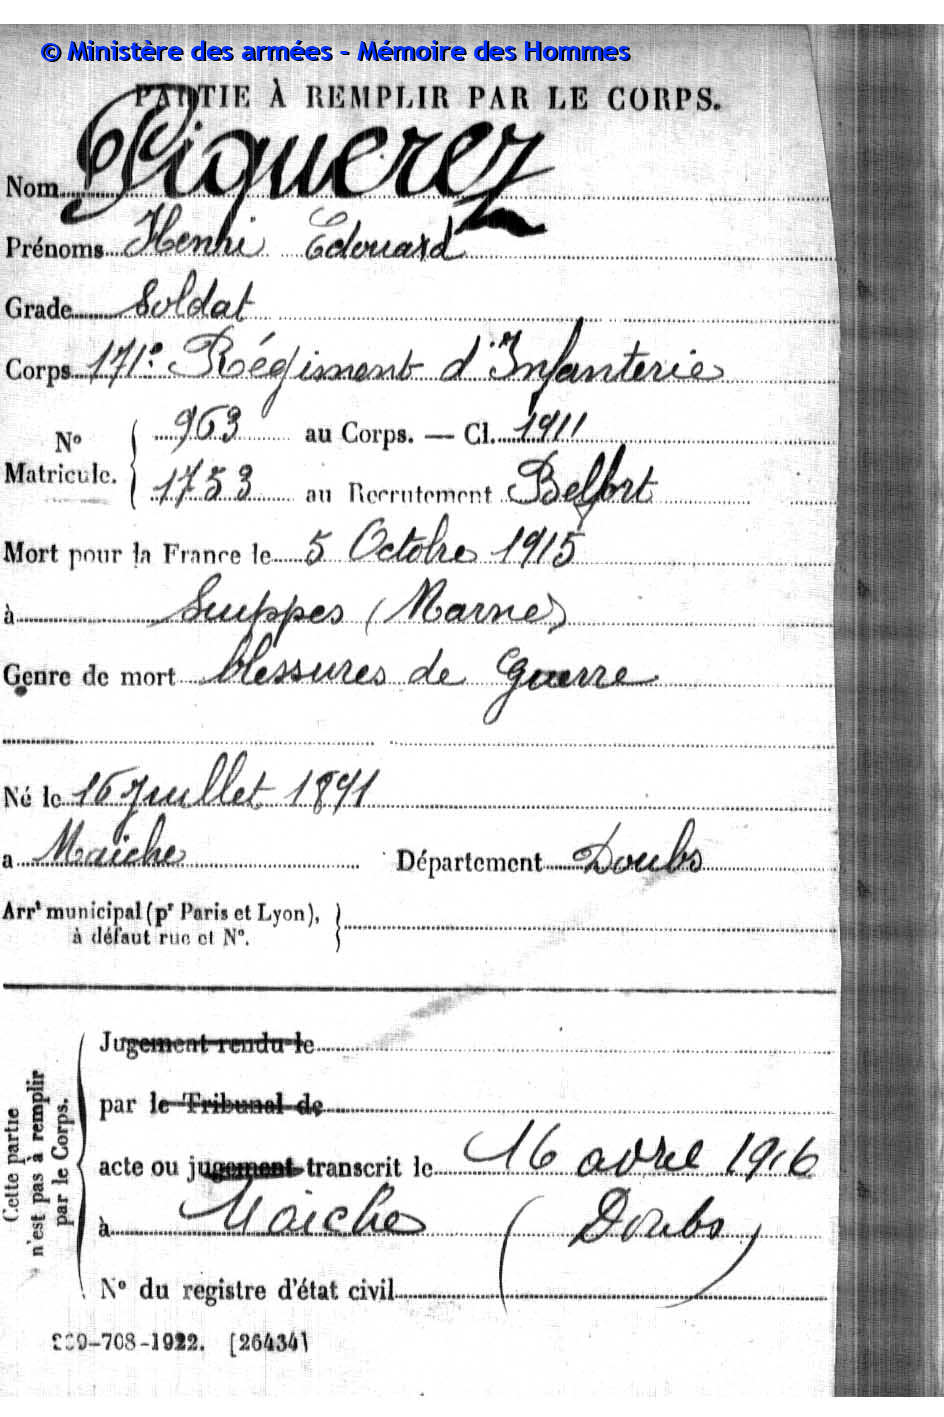 © Ministère des armées - Mémoire des Hommes
PARTIE À REMPLIR PAR LE CORPS.
Nom Piquerez
Prénoms Henri Edouard
Grade Soldat
Corps 171e Régiment d'Infanterie
No 963 au Corps. — Cl. 1911
Matricule. 1753 au Recrutement Belfort
Mort pour la France le 5 Octobre 1915
à Suippes (Marne)
Genre de mort blessures de Guerre
Né le 16 Juillet 1891
à Maiche Département Doubs
Arrt municipal (pr Paris et Lyon),
à défaut rue et No.
Cette partie
n'est pas à remplir
par le Corps.
Jugement rendu le
par le Tribunal de
acte ou jugement transcrit le 16 avril 1916
à Maiche (Doubs)
No du registre d'état civil
-708-1922. [26434]